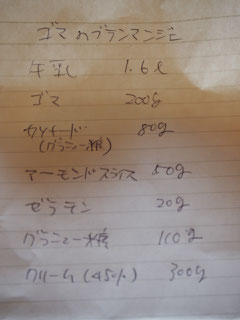 ゴマのブランマンジェ
牛乳 1.6ℓ
ゴマ 200g
80g
(グラニュー糖)
アーモンドスライス 50g
ゼラチン 20g
グラニュー糖 160g
クリーム(45%) 300g